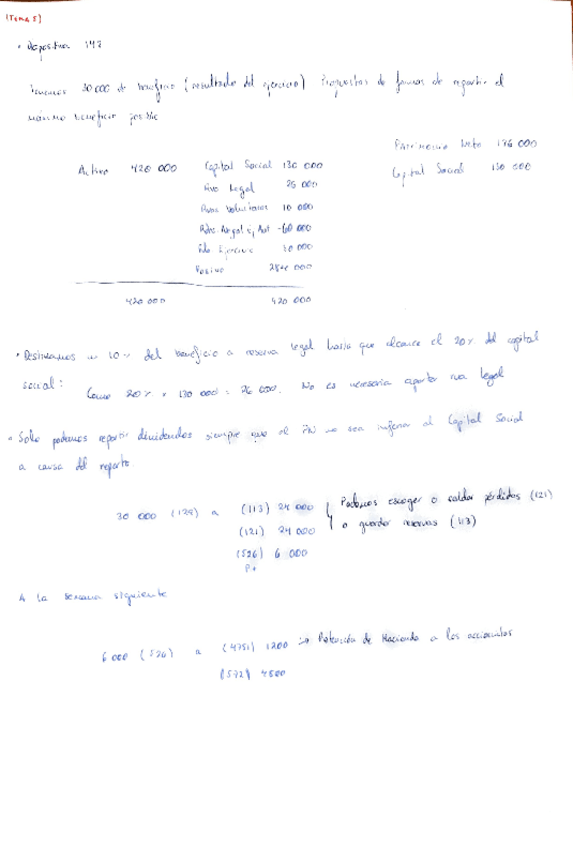 (Tema 5)
• Diapositiva 147
Tenemos 30 000 de beneficio (resultado del ejercicio) Propuestas de formas de repartir el
máximo beneficio posible
Patrimonio Neto 136 000
Activo 420 000 Capital Social 130 000
Capital Social 130 000
Rva Legal 26 000
Rvas Voluntarias 10 000
Rdos. Ant -60 000
Rdo Ejercicio 30 000
Pasivo
420 000 420 000
• Destinamos un 10% del beneficio a reserva legal hasta que alcance el 20% del capital
social:
Como 20% x 130 000 = 26 000. No es necesario aportar rva legal
• Solo podemos repartir dividendos siempre que el PN no sea inferior al Capital Social
a causa del reparto.
30 000 (129) a (113) 24 000 Podemos escoger o saldar pérdidas (121)
(121) 24 000 o guardar reservas (113)
(526) 6 000
A la semana siguiente
6 000 (526) a (4751) 1200 → Retención de Hacienda a los accionistas
(572) 4800